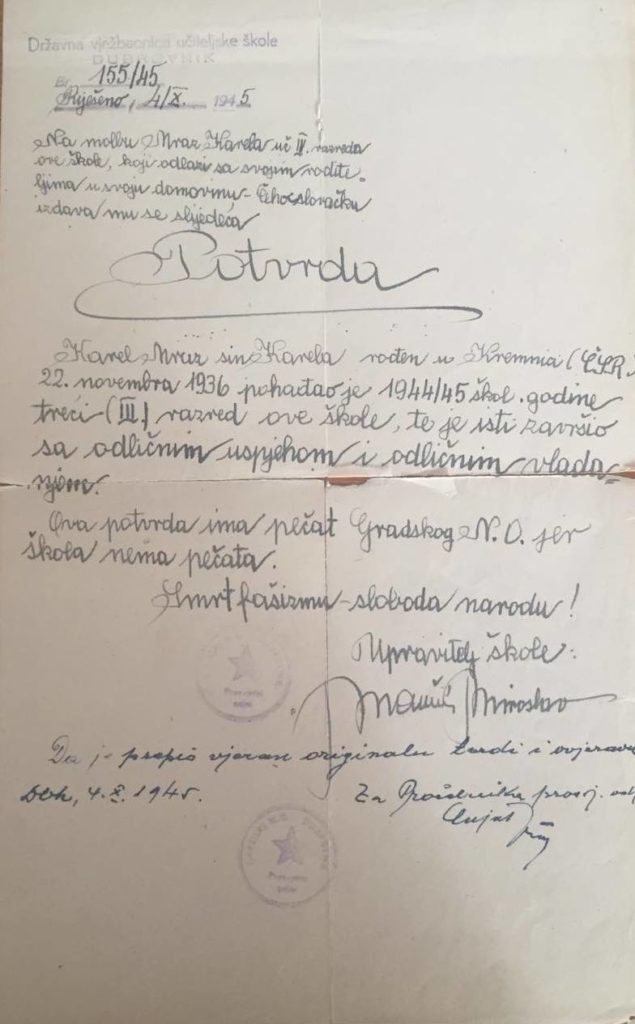 Državna vježbaonica učiteljske škole
DUBROVNIK
Br. 155/45
Riješeno, 4/X. 1945.
Na molbu Mraz Karela uč. IV. razreda
ove škole, koji odlazi sa svojim rodite-
ljima u svoju domovinu - Čehoslovačku
izdava mu se slijedeća
Potvrda
Karel Mraz sin Karela rođen u Kremnia (ČSR.)
22. novembra 1936 pohađao je 1944/45 škol. godine
treći (III.) razred ove škole, te je isti završio
sa odličnim uspjehom i odličnim vlada-
njem.
Ova potvrda ima pečat Gradskog N. O. jer
škola nema pečata.
Smrt fašizmu - sloboda narodu!
Upravitelj škole:
Miroslav
Da je prepis vjeran originalu tvrdi i ovjerava
Dbk, 4. X. 1945.
Za Pročelnika prosv. odj.